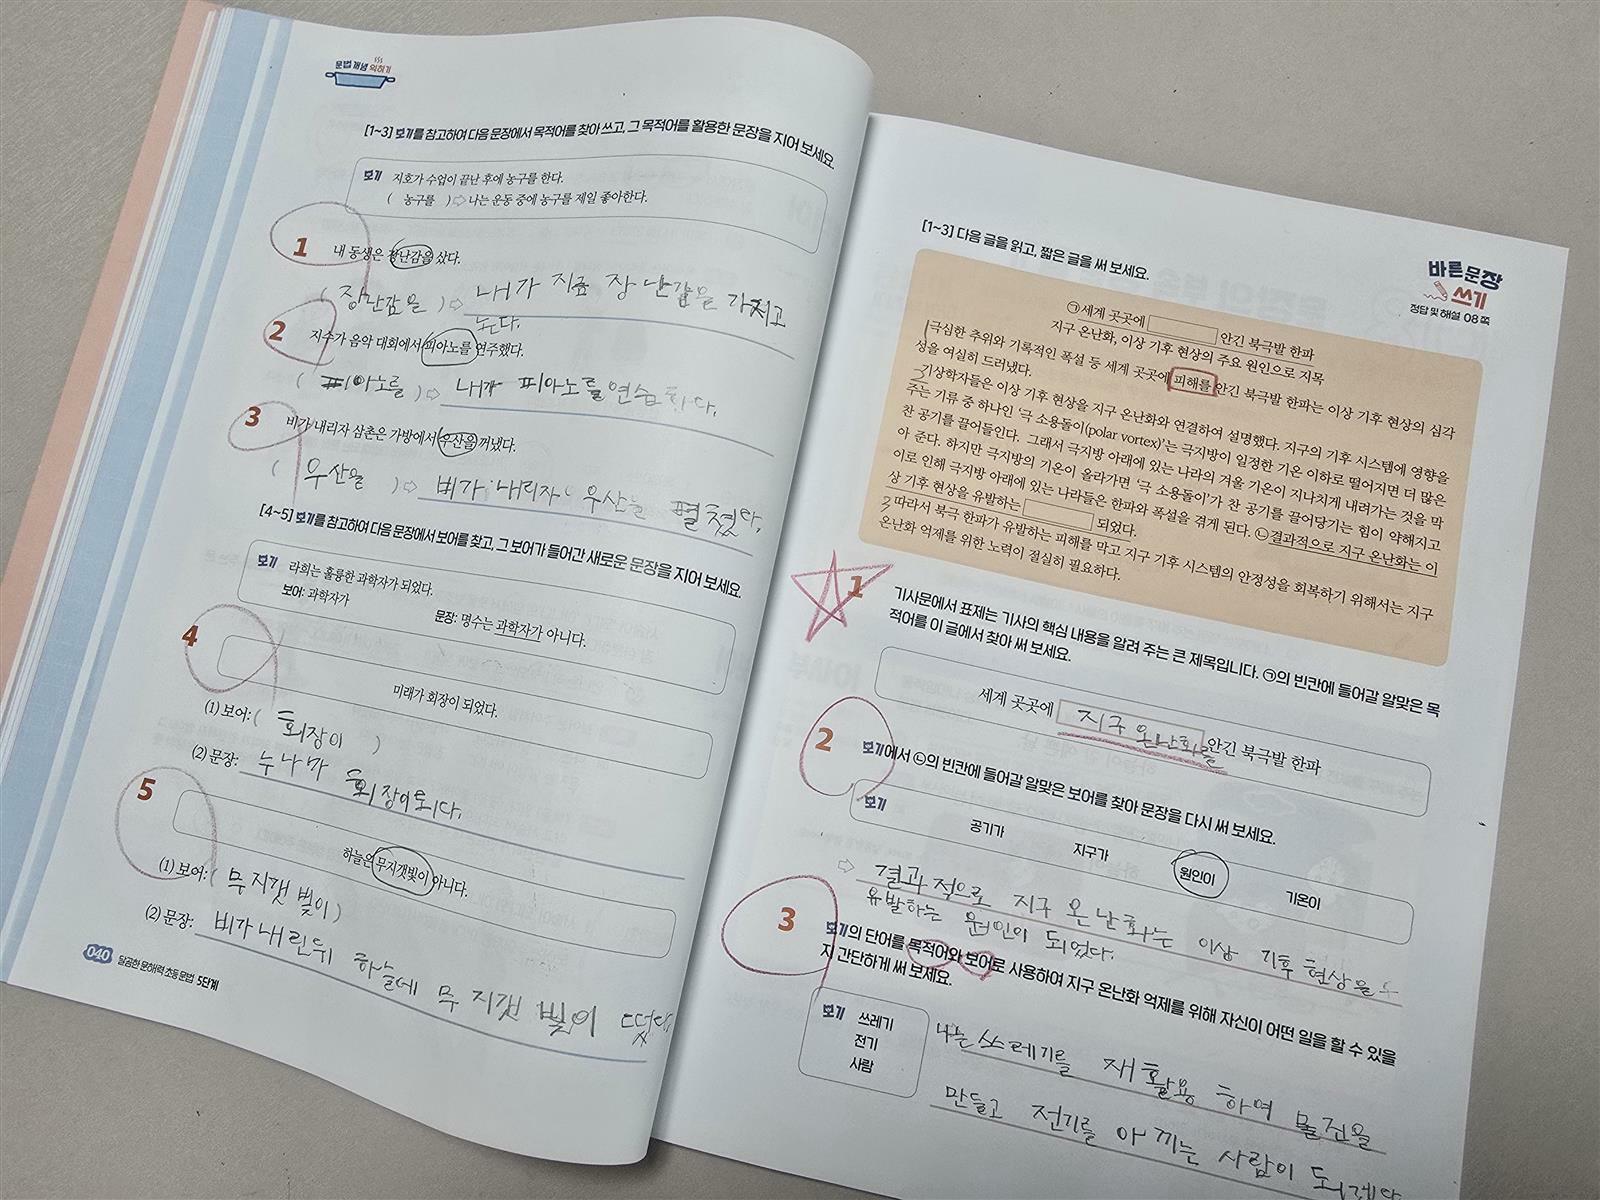 문법 개념 익히기
[1~3] 보기를 참고하여 다음 문장에서 목적어를 찾아 쓰고, 그 목적어를 활용한 문장을 지어 보세요.
보기 지호가 수업이 끝난 후에 농구를 한다.
( 농구를 ) ⇨ 나는 운동 중에 농구를 제일 좋아한다.
1 내 동생은 장난감을 샀다.
( 장난감을 ) ⇨ 내가 지금 장난감을 가지고
논다.
2 지수가 음악 대회에서 피아노를 연주했다.
( 피아노를 ) ⇨ 내가 피아노를 연습한다.
3 비가 내리자 삼촌은 가방에서 우산을 꺼냈다.
( 우산을 ) ⇨ 비가 내리자 우산을 펼쳤다.
[4~5] 보기를 참고하여 다음 문장에서 보어를 찾고, 그 보어가 들어간 새로운 문장을 지어 보세요.
보기 라희는 훌륭한 과학자가 되었다.
보어: 과학자가 문장: 명수는 과학자가 아니다.
4 미래가 회장이 되었다.
(1) 보어: ( 회장이 )
(2) 문장: 누나가 회장이 되다.
5 하늘은 무지갯빛이 아니다.
(1) 보어: ( 무지갯빛이 )
(2) 문장: 비가 내린 뒤 하늘에 무지갯빛이 떴다
040 달곰한 문해력 초등 문법 5단계
[1~3] 다음 글을 읽고, 짧은 글을 써 보세요.
바른 문장
쓰기
정답 및 해설 08쪽
㉠세계 곳곳에 안긴 북극발 한파
지구 온난화, 이상 기후 현상의 주요 원인으로 지목
극심한 추위와 기록적인 폭설 등 세계 곳곳에 피해를 안긴 북극발 한파는 이상 기후 현상의 심각
성을 여실히 드러냈다.
기상학자들은 이상 기후 현상을 지구 온난화와 연결하여 설명했다. 지구의 기후 시스템에 영향을
주는 기류 중 하나인 ‘극 소용돌이(polar vortex)’는 극지방이 일정한 기온 이하로 떨어지면 더 많은
찬 공기를 끌어들인다. 그래서 극지방 아래에 있는 나라의 겨울 기온이 지나치게 내려가는 것을 막
아 준다. 하지만 극지방의 기온이 올라가면 ‘극 소용돌이’가 찬 공기를 끌어당기는 힘이 약해지고
이로 인해 극지방 아래에 있는 나라들은 한파와 폭설을 겪게 된다. ㉡결과적으로 지구 온난화는 이
상 기후 현상을 유발하는 되었다.
따라서 북극 한파가 유발하는 피해를 막고 지구 기후 시스템의 안정성을 회복하기 위해서는 지구
온난화 억제를 위한 노력이 절실히 필요하다.
1 기사문에서 표제는 기사의 핵심 내용을 알려 주는 큰 제목입니다. ㉠의 빈칸에 들어갈 알맞은 목
적어를 이 글에서 찾아 써 보세요.
세계 곳곳에 지구 온난화를 안긴 북극발 한파
2 보기에서 ㉡의 빈칸에 들어갈 알맞은 보어를 찾아 문장을 다시 써 보세요.
보기 공기가 지구가 원인이 기온이
⇨ 결과적으로 지구 온난화는 이상 기후 현상을
유발하는 원인이 되었다.
3 보기의 단어를 목적어와 보어로 사용하여 지구 온난화 억제를 위해 자신이 어떤 일을 할 수 있을
지 간단하게 써 보세요.
보기 쓰레기
전기
사람
나는 쓰레기를 재활용 하여 물건을
만들고 전기를 아끼는 사람이 되겠다